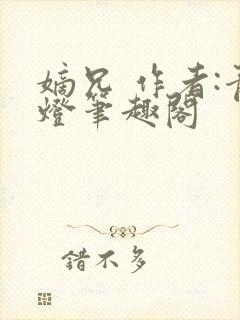 嫡兄 作者:青
燈筆趣閣
錯不多